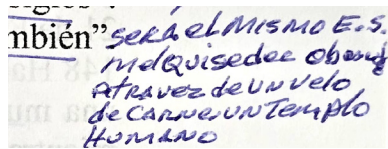 mbién” SERÁ EL MISMO E.S.
MelQUISedec Obrando
ATRAVEZ de UN Velo
de CARNE UN TemPlo
HUMANO